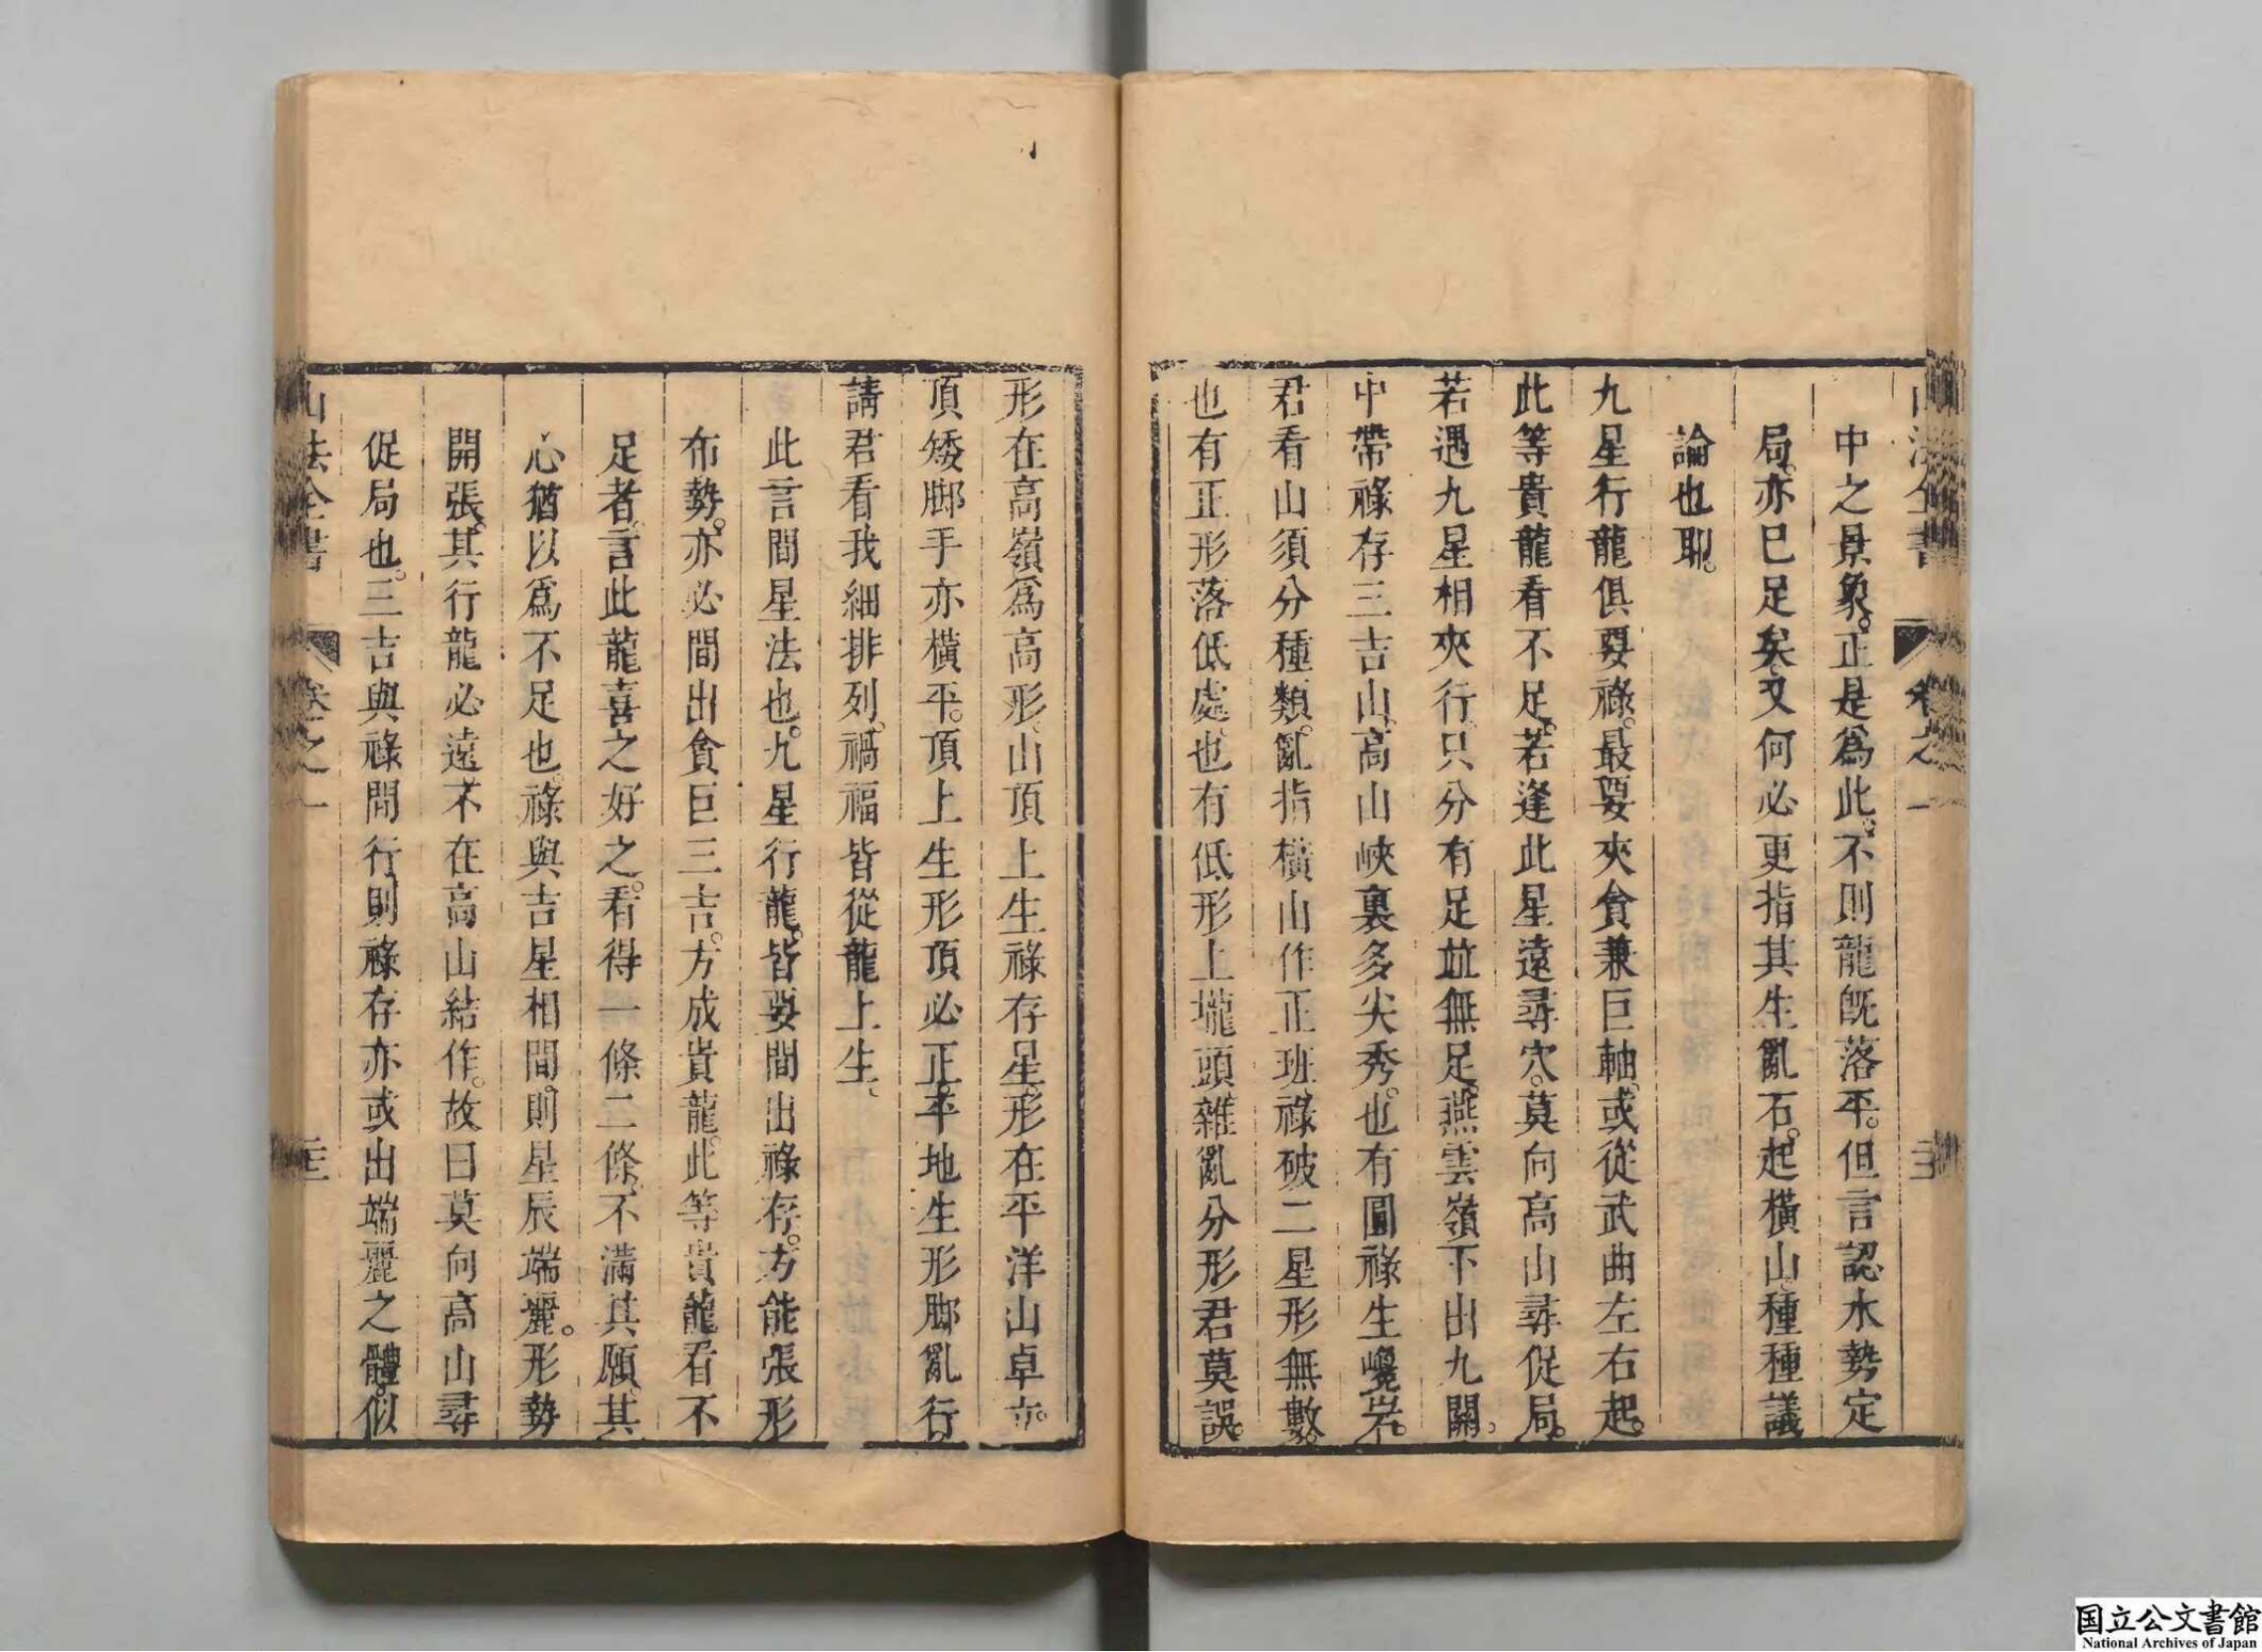 中之景象。正是爲此。不則龍旣落平。但言認水勢定
局。亦已足矣。又何必更指其生亂石。起橫山。種種議
論也耶。
九星行龍俱要祿。最要夾貪兼巨軸。或從武曲左右起。
此等貴龍看不足。若逢此星遠尋穴。莫向高山尋促局。
若遇九星相夾行。只分有足並無足。燕雲嶺下出九關。
中帶祿存三吉山。高山峽裏多尖秀。也有圓祿生巉岩。
君看山須分種類。亂指橫山作正班。祿破二星形無數。
也有正形落低處。也有低形上壠頭。雜亂分形君莫誤。
形在高嶺爲高形。山頂上生祿存星。形在平洋山卓立。
頂矮脚手亦橫平。頂上生形頂必正。平地生形脚亂行。
請君看我細排列。禍福皆從龍上生。
此言間星法也。九星行龍。皆要間出祿存。方能張形
布勢。亦必間出貪巨三吉。方成貴龍。此等貴龍看不
足者。言此龍喜之好之。看得一條二條。不滿其願。其
心猶以爲不足也。祿與吉星相間。則星辰端麗。形勢
開張。其行龍必遠。不在高山結作。故曰莫向高山尋
促局也。三吉與祿間行。則祿存亦或出端麗之體。似
山法全書
卷之一
國立公文書館
National Archives of Japan